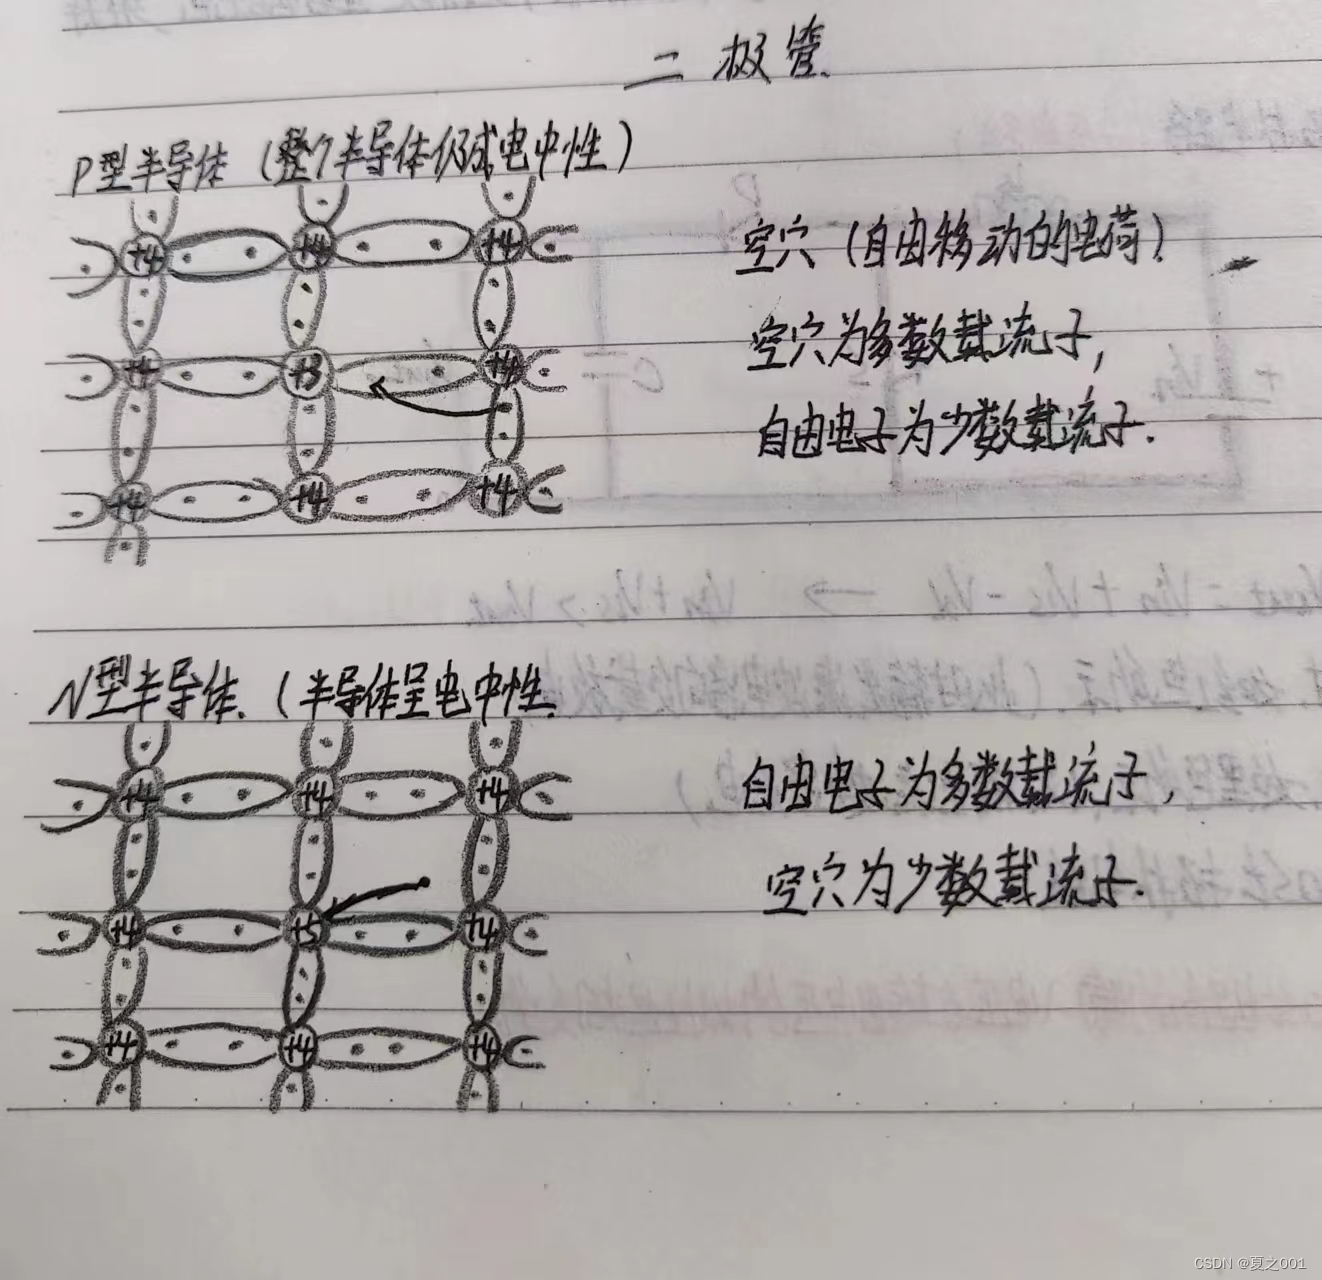 二极管.
P型半导体(整个半导体仍成电中性)
+4 +4 +4
空穴(自由移动的电荷)
空穴为多数载流子,
+4 +3 +4
自由电子为少数载流子.
+4 +4 +4
N型半导体.(半导体呈电中性.
+4 +4 +4
自由电子为多数载流子,
空穴为少数载流子.
+4 +5 +4
+4 +4 +4
CSDN @夏之001